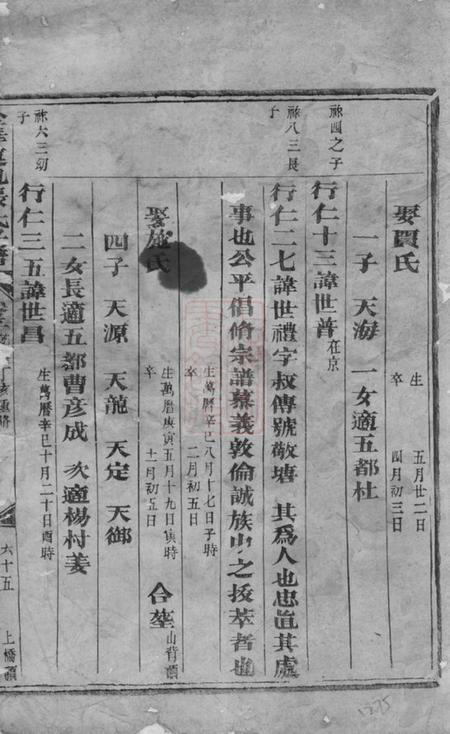 娶賈氏 生 五月廿二日 卒 四月初三日
一子 天海 一女適五都杜
祿四之子
行仁十三諱世善在京
祿八三長子
行仁二七諱世禮字叔傳號敬塘 其爲人也忠直其處
事也公平倡脩宗譜慕義敦倫誠族中之拔萃者也
生萬曆辛巳八月十七日子時 卒 二月初五日
娶施氏 生萬曆庚寅五月十九日寅時 卒 十一月初五日 合塟山背頭
四子 天源 天龍 天定 天御
二女長適五都曹彥成 次適楊村姜
祿六三幼子
行仁三五諱世昌 生萬曆辛巳十月二十日酉時
六十五 上橋頭
1375